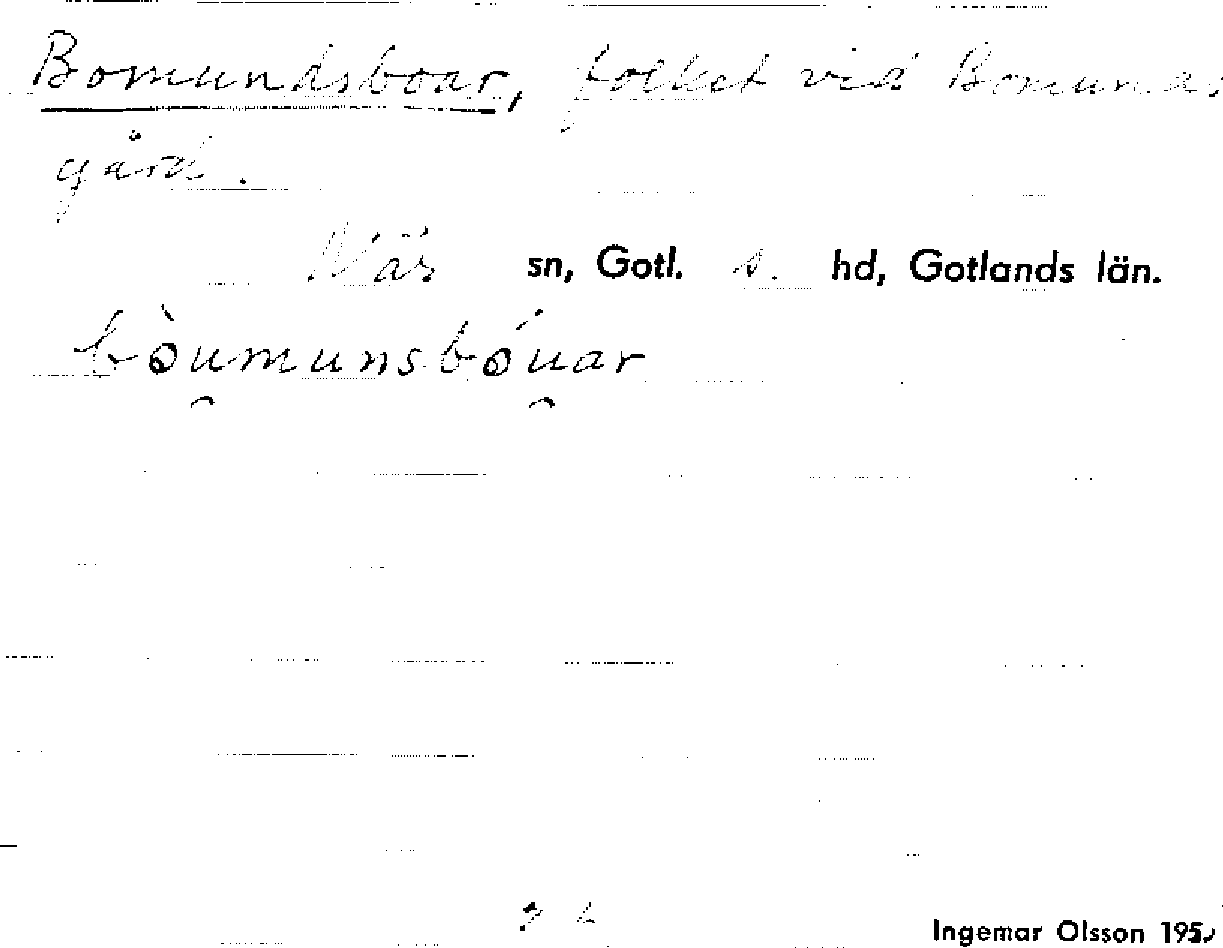 Bomundsboar, folket vid Bomunds
gård.
När sn, Gotl. s. hd, Gotlands län.
bòu̯munsbóu̯ar
Ingemar Olsson 195